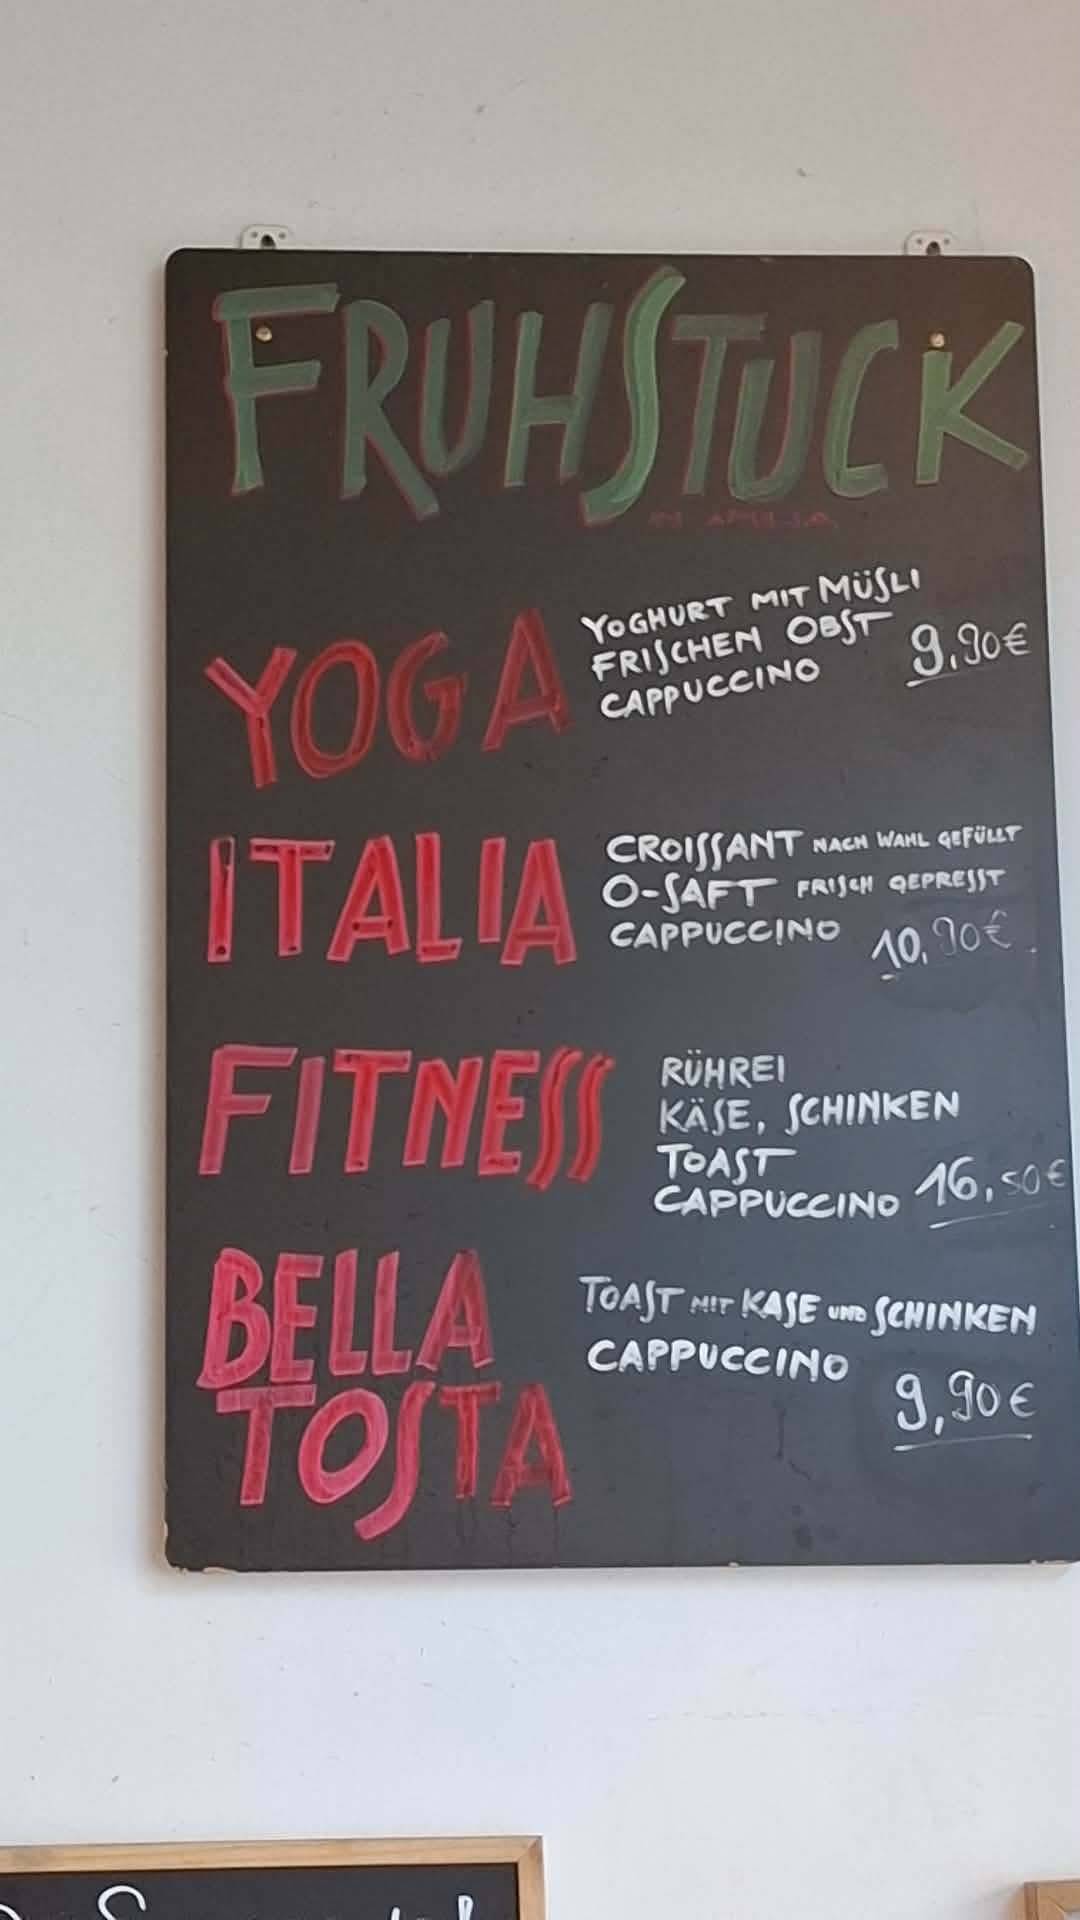 FRUHSTUCK
YOGA
YOGHURT MIT MÜSLI
FRISCHEN OBST
CAPPUCCINO
9,90€
ITALIA
CROISSANT NACH WAHL GEFÜLLT
O-SAFT FRISCH GEPRESST
CAPPUCCINO
10,90€
FITNESS
RÜHREI
KÄSE, SCHINKEN
TOAST
CAPPUCCINO 16,50€
BELLA
TOSTA
TOAST MIT KASE UND SCHINKEN
CAPPUCCINO
9,90€